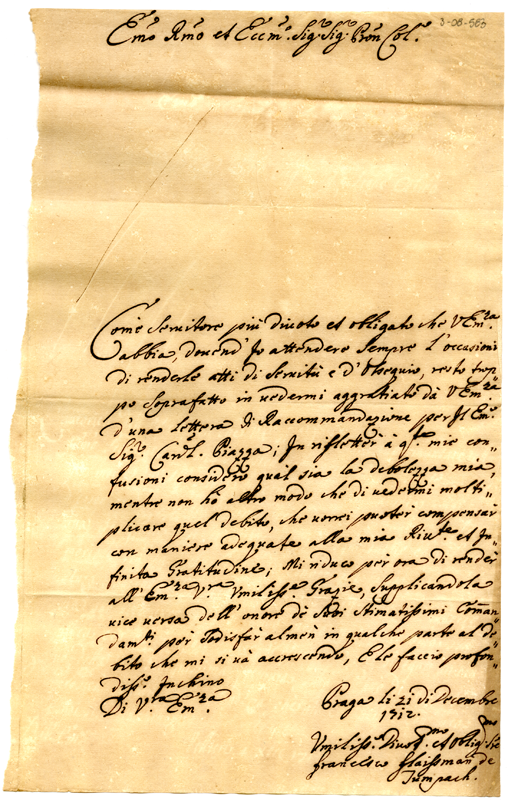 3-08-563
Emo Rmo et Eccmo. Sigr. Sigr. Pron Col.
Come Servitore più divoto et obligato che V Emza.
abbia, dovend' Jo attendere sempre l'occasioni
di renderle atti di servitù e d'Obsequio, resto trop=
po soprafatto in vedermi aggratiato dà V Emza
d'una lettera di Raccommandazione per Jl Emo.
Sigr. Cardl. Piazza; Jn rifletter à qste mie con=
fusioni considero qual sia la debolezza mia,
mentre non hò altro modo che di vedermi molti=
plicare quel debito, che vorrei puoter compensar
con maniere adequate alla mia Rivte et Jn=
finita Gratitudine; Mi riduco per ora di render
all' Emza Vra Vmiliss. Grazie, supplicandola
vice versa dell' onore dè stimatissimi Coman=
damti per sodisfar almen in qualche parte al de=
bito che mi si và accrescendo, E le faccio profon=
diss. Jnchino
Di Vra Emza.
Praga li 21 di Decembre
1712.
Vmiliss. Divotmo et Oblig
francesco Claissman de
Tumpach.